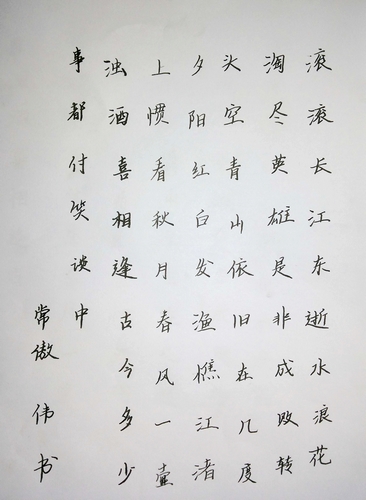 滚滚长江东逝水浪花
淘尽英雄是非成败转
头空青山依旧在几度
夕阳红白发渔樵江渚
上惯看秋月春风一壶
浊酒喜相逢古今多少
事都付笑谈中
常傲伟书